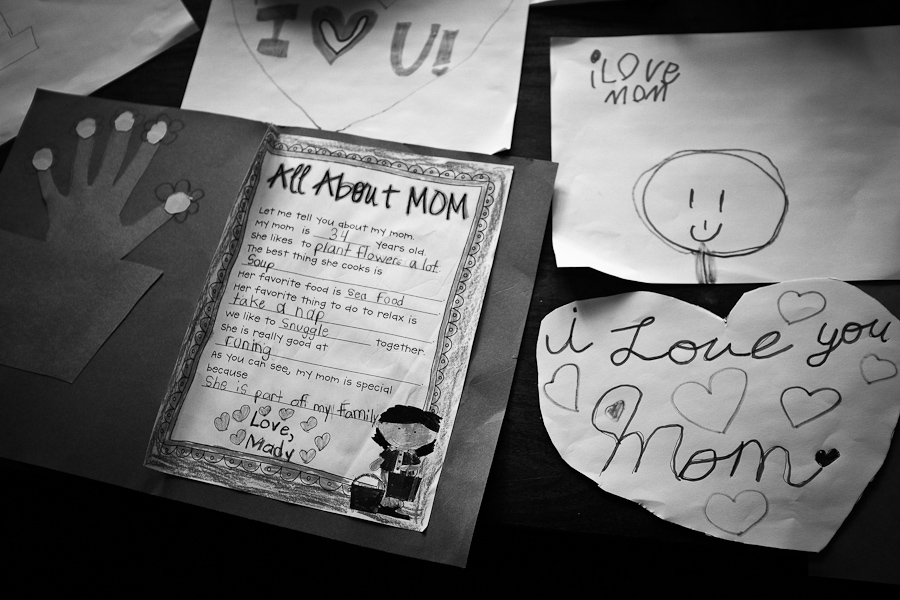 I ♥ U!
i Love
mom
All About MOM
Let me tell you about my mom.
My mom is 34 years old.
She likes to plant flowers a lot
The best thing she cooks is
Soup
Her favorite food is Sea food
Her favorite thing to do to relax is
take a nap
We like to snuggle together.
She is really good at
runing
As you can see, my mom is special
because
She is part off my family
Love,
Mady
i Love you
Mom